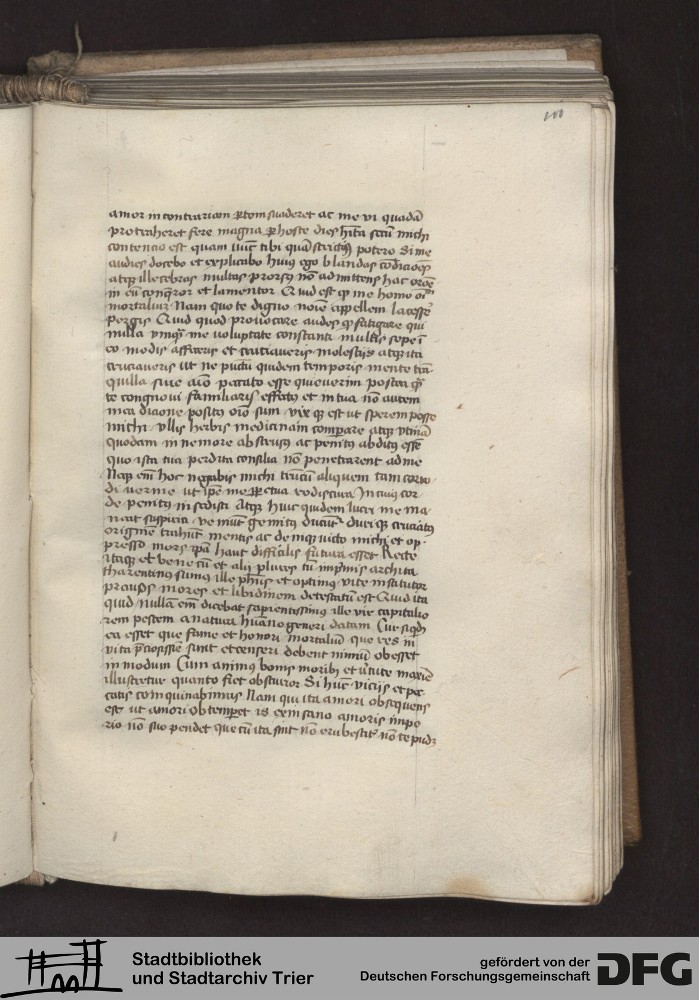 100
amor in contrariam ptem suaderet ac me vi quadā
protraheret fere magna p hoste dies hita secū michi
contencio est quam nūc tibi potero Si me
audies docebo et explicabo huiꝰ ego blandas cōdicōēs
atqꝫ illecebras multas prorsꝰ nō admittens hac orōē
in eū conqror et lamentor Quid est qꝫ me homo
mortaliū Nam quo te digno noīe appellem lacessē
pergis Quid quod provocare audes fatigare qui
nulla vnqᷓ me voluptate constanti multis sepe ī
eo modis affeceris et cruciaveris molestijs atqꝫ ita
cruciaveris ut ne pūctū quidem temporis mente trā
quilla siue aīo pacato esse quieuerim postea qᷓ
te congnoui familiaris effectꝰ et in tua nō autem
mea dicione positꝰ oīo sum vix qꝫ est ut sperem posse
michi vllis herbis medicinam comparare atqꝫ vtinā
quodam in nemore abstrusꝰ ac penitꝰ abditꝰ esse
quo ista tua perdita consilia nō penetrarent ad me
Neqꝫ em̄ hoc negabis michi aliquem tam
di verme ut ip̄e me ppetua In cuiꝰ cor
de penitꝰ insedisti Atqꝫ huic quidem me ma
neat suspicio ve gemitꝰ ducūt duriqꝫ cruciatꝰ
origine trahūt mentis ac deniqꝫ victo michi et op
presso mors ip̄a haut difficilis futura esset Recte
itaqꝫ et bene tū et alij plures tū imprimis archita
tharentinꝰ sumꝰ ille phūs et optimꝰ vite institutor
prauos mores et libidinem detestatū est Quid ita
quid nullam em̄ dicebat sapientissimꝰ ille vir capitalio
rem pestem a natura humano generi datam Cur
ea esset que fame et honori mortaliū que res in
vita pciosissime sunt et censeri debent nimiū obesset
in modum Cum animꝰ bonis moribꝰ et vtute maxīe
illustretur quanto fiet obscurior Si hūc vicijs et pec
catis coinquinabimus Nam qui ita amori obsequens
est ut amori obtemperet is examinando amoris impe
rio nō suo pendet que cū ita sint nō erubescit nō te pudz
Stadtbibliothek
und Stadtarchiv Trier
gefördert von der
Deutschen Forschungsgemeinschaft
DFG